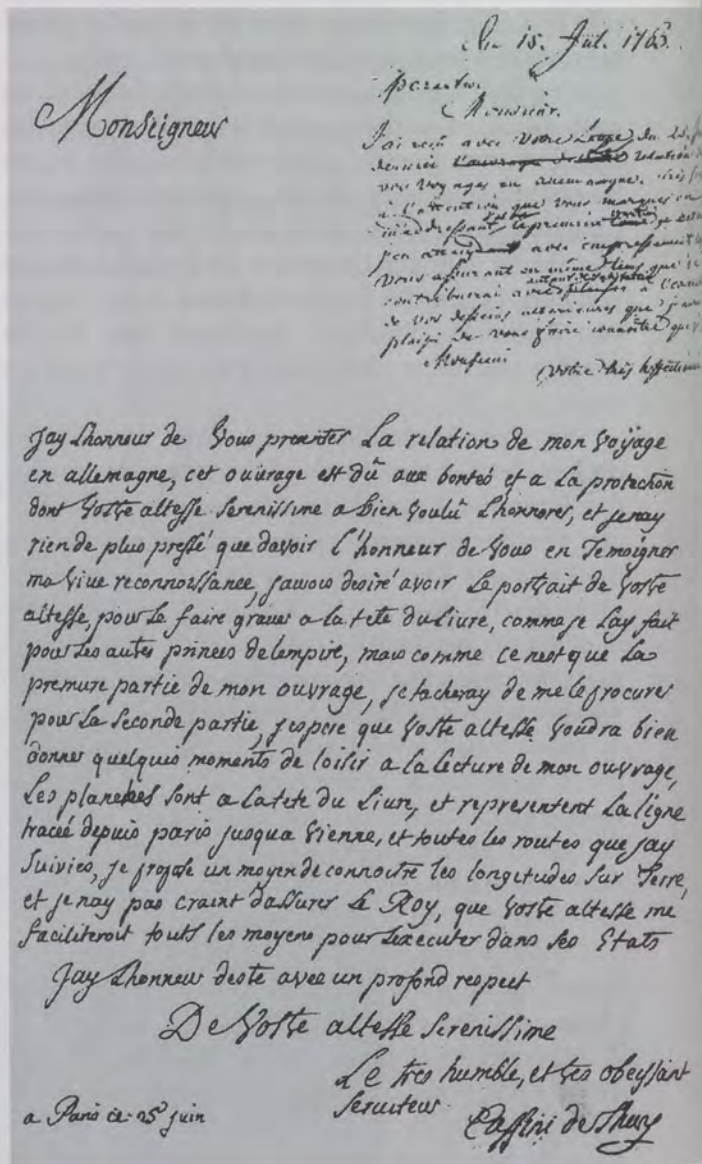 Monseigneur
15. Jul. 1763.
Monsieur.
J'ai reçû avec Votre Lettre du
derniere relation
vos voyages en allemagne.
à l'attention que vous marques en
m'addressant la premiere partie
j'en avec empressement
Vous assurant en même tems que
contribuerai avec
de vos desseins ulterieures que
plaisir de vous faire connoitre que
Monsieur
Votre très
Jay Lhonneur de Vous presenter La relation de mon Voyage
en allemagne, cet ouurage est dû aux bontés et a La protection
dont Vostre altesse Serenissime a bien Voulû Lhonnorer, et je nay
rien de plus pressé que davoir l'honneur de Vous en Temoigner
ma Viue reconnoissance, jaurois desiré avoir Le portrait de Vostre
altesse, pour Le faire grauer a la tete du Liure, comme je Lay fait
pour Les autres princes de lempire, mais comme ce nest que La
premiere partie de mon ouvrage, je tacheray de me le procurer
pour La Seconde partie, jespere que Vostre altesse Voudra bien
donner quelques moments de loisir a la Lecture de mon ouvrage,
Les planches sont a La tete du Liure, et representent La ligne
tracée depuis paris jusqua Vienne, et toutes les routes que jay
Suivies, je propose un moyen de connoitre les longitudes sur Terre,
et je nay pas craint dassurer Le Roy, que Vostre altesse me
faciliteroit touts les moyens pour Lexecuter dans ses Etats
Jay Lhonneur deste avec un profond respect
De Vostre altesse Serenissime
Le tres humble, et tres obeyssant
Seruiteur
a Paris ce 25 juin
Cassini de Thury